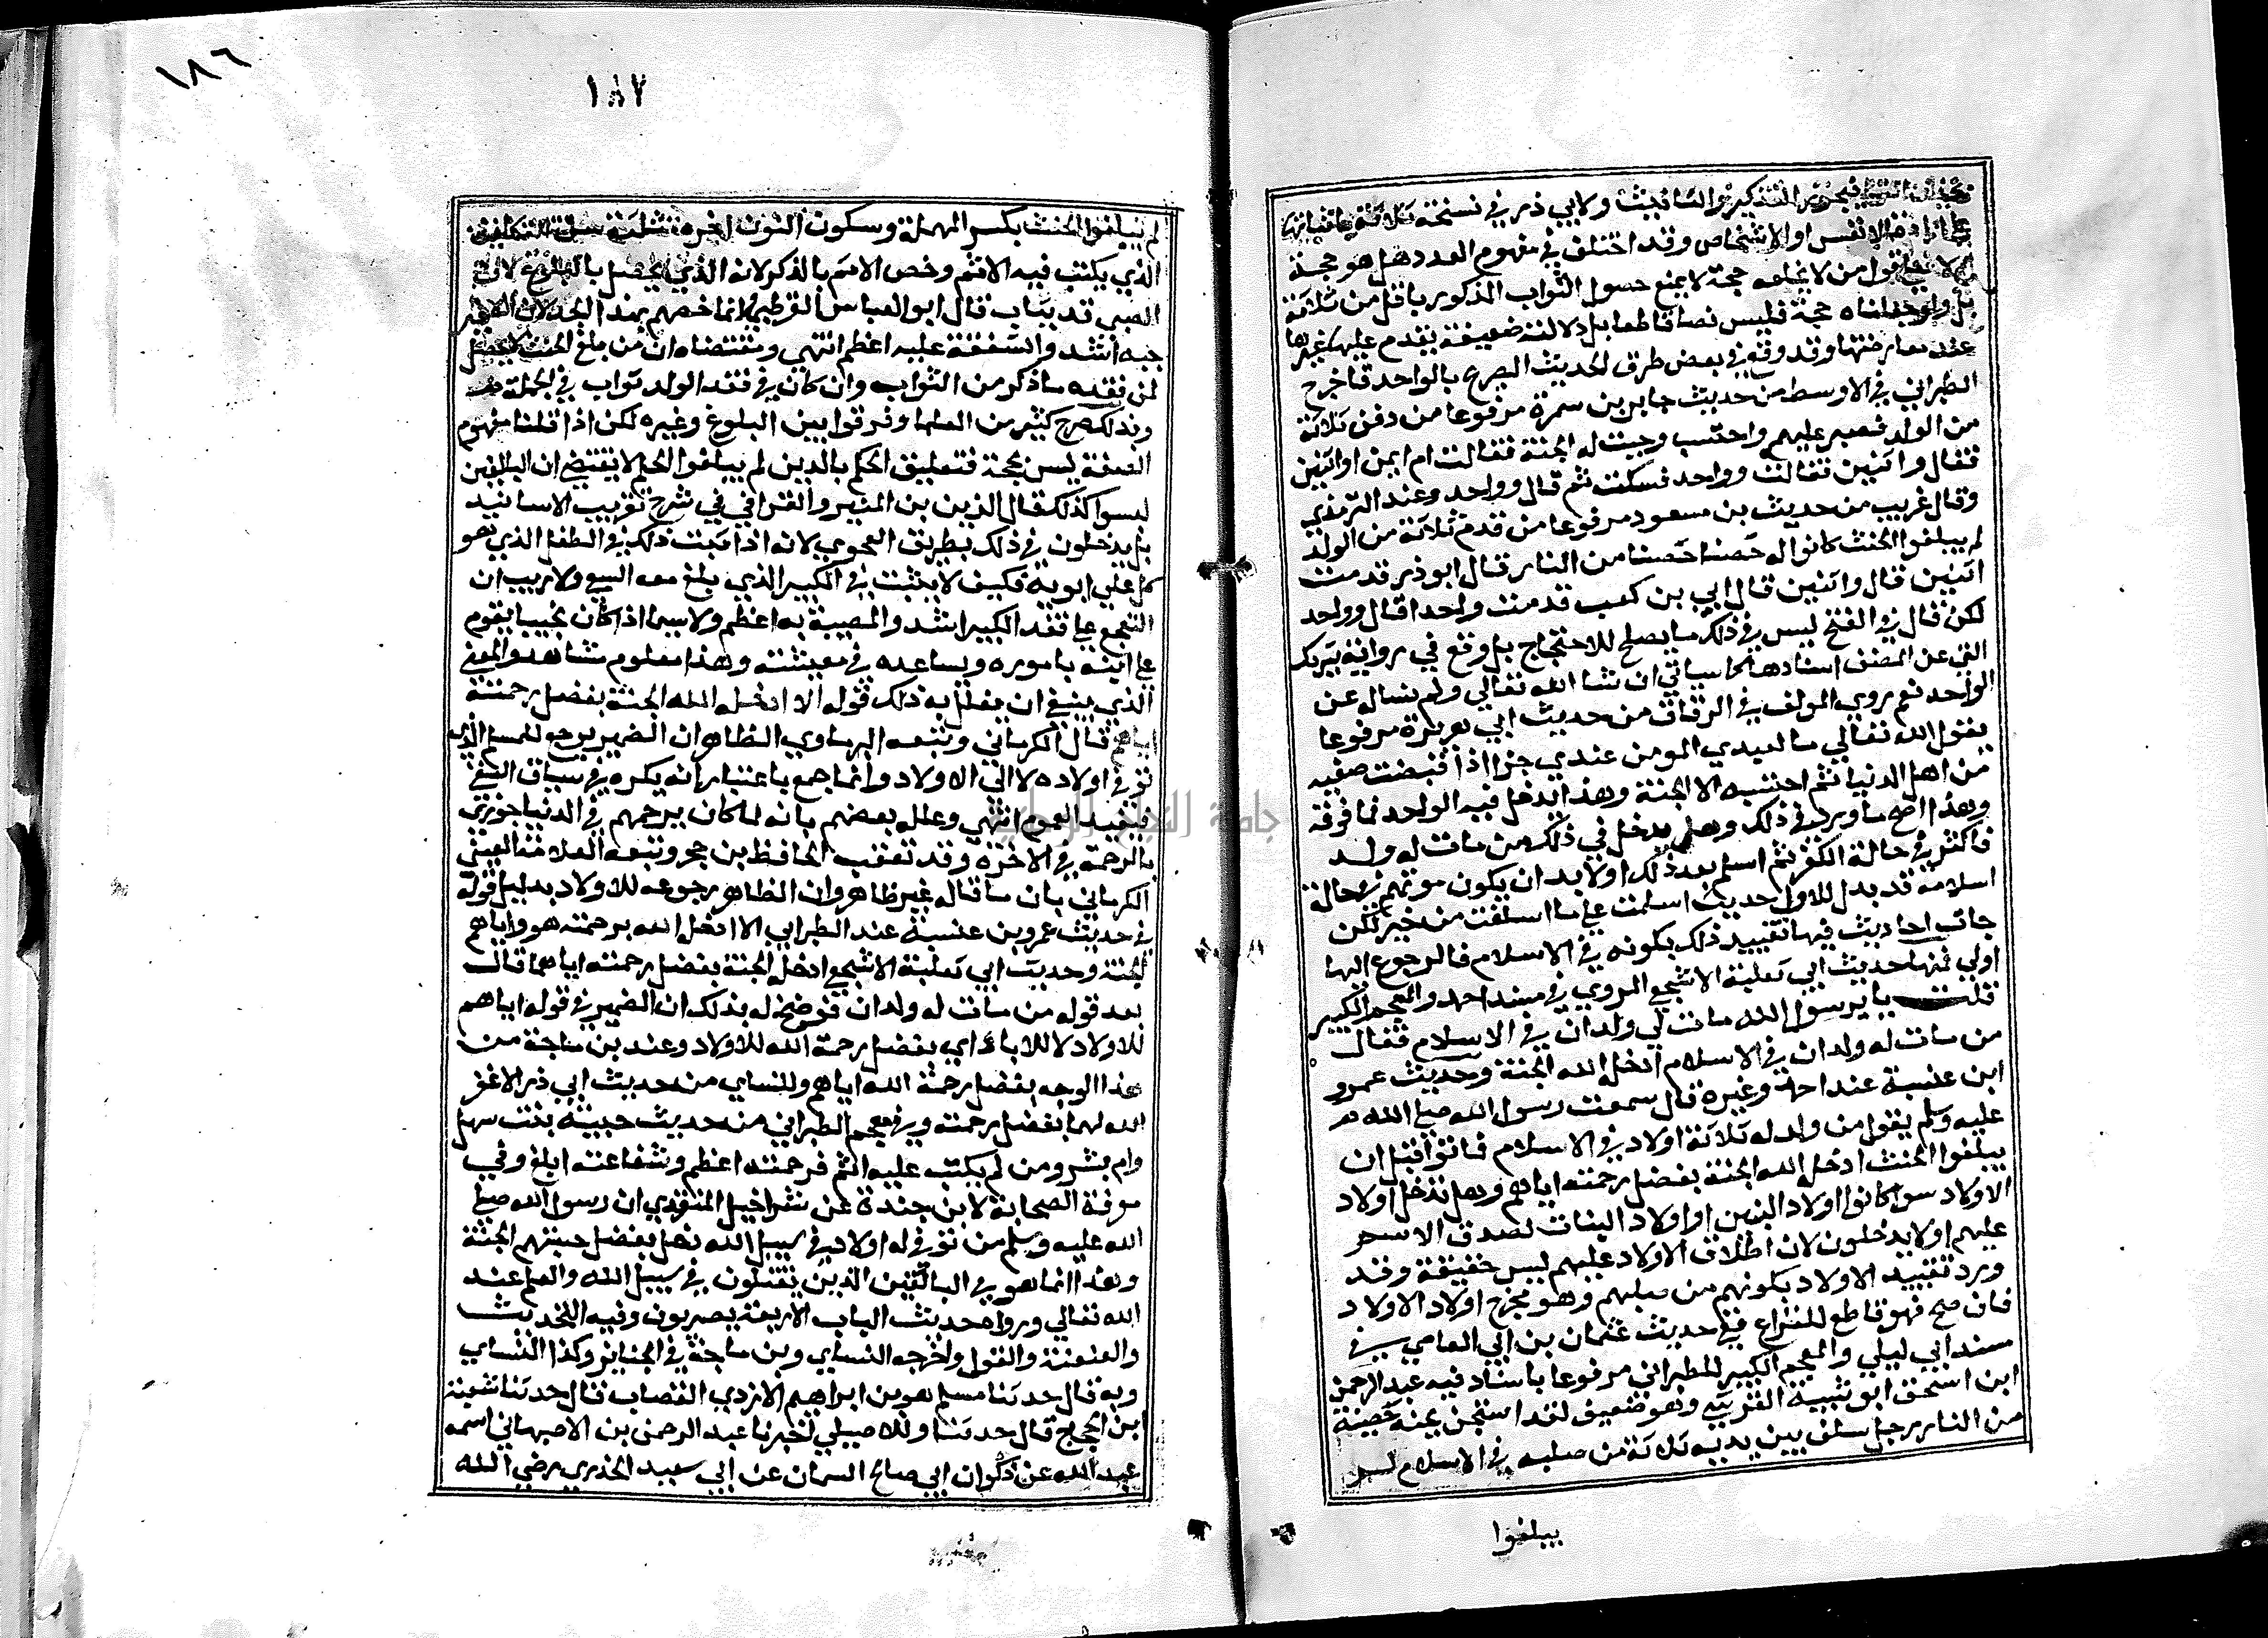 فيجوز التذكير والتانيث ولابي ذر في نسخة ثلاثة باثباتها
على ارادة الانفس او الاشخاص وقد اختلف في مفهوم العدد هل هو حجة
قول من لا يجعله حجة لا يمنع حصول الثواب المذكور باقل من ثلاثة
بل ولو جعلناه حجة فليس نصا قاطعا بل دلالته ضعيفة يقدم عليها غيرها
عند معارضتها وقد وقع في بعض طرق الحديث التصريح بالواحد فاخرج
الطبراني في الاوسط من حديث جابر بن سمرة مرفوعا من دفن ثلاثة
من الولد فصبر عليهم واحتسب وجبت له الجنة فقالت ام ايمن او اثنين
فقال واثنين فقالت وواحد فسكت ثم قال وواحد وعند الترمذي
وقال غريب من حديث بن مسعود مرفوعا من قدم ثلاثة من الولد
لم يبلغوا الحنث كانوا له حصنا حصينا من النار قال ابو ذر قدمت
اثنين قال واثنين قال ابي بن كعب قدمت واحدا قال وواحد
لكن قال في الفتح ليس في ذلك ما يصلح للاحتجاج بل وقع في رواية شريك
التي عن المصنف اسنادها كما سياتي ان شا الله تعالى ولم نساله عن
الواحد نعم روي المولف في الرقاق من حديث ابي هريرة مرفوعا
يقول الله تعالي ما لعبدي المومن عندي جزا اذا قبضت صفيه
من اهل الدنيا ثم احتسبه الا الجنة وهذا يدخل فيه الواحد فما فوقه
وهذا اصح ما ورد في ذلك وهل يدخل في ذلك من مات له ولد
فاكثر في حالة الكفر ثم اسلم بعد ذلك او لا بد ان يكون موتهم في حالة
اسلامه قد يدل للاول حديث اسلمت على ما اسلفت من خير لكن
جات احاديث فيها تقييد ذلك بكونه في الاسلام فالرجوع اليها
اولي فمنها حديث ابي ثعلبة الاشجعي المروي في مسند احمد والمعجم الكبير
قلت يا رسول الله مات لي ولدان في الاسلام فقال
من مات له ولدان في الاسلام ادخله الله الجنة وحديث عمرو
ابن عنبسة عند احمد وغيره قال سمعت رسول الله صلى الله
عليه وسلم يقول من ولد له ثلاثة اولاد في الاسلام فماتوا قبل ان
يبلغوا الحنث ادخله الله الجنة بفضل رحمته اياهم وهل تدخل اولاد
الاولاد سوا كانوا اولاد البنين او اولاد البنات لصدق الاسم
عليهم او لا يدخلون لان اطلاق الاولاد عليهم ليس حقيقة وقد
ورد تقييد الاولاد بكونهم من صلبهم وهو مخرج اولاد الاولاد
فان صح فهو قاطع للنزاع ففي حديث عثمان بن ابي العاصي في
مسند ابي ليلي والمعجم الكبير للطبراني مرفوعا باسناد فيه عبد الرحمن
ابن اسحق ابو شيبة القرشي وهو ضعيف لقد استجن بجنة حصينة
من النار رجل سلف بين يديه ثلاثة من صلبه في الاسلام لم
يبلغوا
١٨٦
١٨٧
لم يبلغوا الحنث بكسر المهملة وسكون النون اخره مثلثة سن التكليف
الذي يكتب فيه الاثم وخص الاثم بالذكر لانه الذي يحصل بالبلوغ لان
الصبي قد يثاب قال ابو العباس القرطبي انما خصهم بهذا الحد لان الصغير
حبه اشد والشفقة عليه اعظم انتهي ومقتضاه ان من بلغ الحنث لا يحصل
لمن فقده ما ذكر من الثواب وان كان في فقد الولد ثواب في الجملة
وبذلك صرح كثير من العلما وفرقوا بين البلوغ وغيره لكن اذا قلنا مفهوم
الصفة ليس بحجة فتعليق الحكم بالذين لم يبلغوا الحلم لا يقتضي ان البالغين
ليسوا كذلك قال الزين بن المنير والعراقي في شرح تقريب الاسانيد
بل يدخلون في ذلك بطريق الفحوي لانه اذا ثبت ذلك في الطفل الذي هو
كل علي ابويه فكيف لا يثبت في الكبير الذي بلغ معه السعي ولا ريب ان
التفجع على فقد الكبير اشد والمصيبة به اعظم ولا سيما اذا كان نجيبا يقوم
على ابيه باموره ويساعده في معيشته وهذا معلوم مشاهد والمعني
الذي ينبغي ان يعلل به ذلك قوله الا ادخله الله الجنة بفضل رحمته
اياهم قال الكرماني وتبعه البرماوي الظاهر ان الضمير يرجع للمسلم الذي
توفي اولاده لا الي الاولاد وانما جمع باعتبار انه نكرة في سياق النفي
فتفيد العموم انتهي وعلله بعضهم بانه لما كان يرحمهم في الدنيا جوزي
بالرحمة في الاخرة وقد تعقب الحافظ بن حجر وتبعه العلامة العيني
الكرماني بان ما قاله غير ظاهر وان الظاهر رجوعه للاولاد بدليل قوله
في حديث عمرو بن عنبسة عند الطبراني الا ادخله الله برحمته هو واياهم
الجنة وحديث ابي ثعلبة الاشجعي ادخله الجنة بفضل رحمته اياهما قاله
بعد قوله من مات له ولدان فوضح له بذلك ان الضمير في قوله اياهم
للاولاد لا للابا اي بفضل رحمة الله للاولاد وعند بن ماجة من
هذا الوجه بفضل رحمة الله اياهم وللنساي من حديث ابي ذر الا غفر
الله لهما بفضل رحمته وفي معجم الطبراني من حديث حبيبة بنت سهل
وام بشر ومن لم يكتب عليه اثم فرحمته اعظم وشفاعته ابلغ وفي
معرفة الصحابة لابن مندة عن شراحيل المنقري ان رسول الله صلى
الله عليه وسلم من توفي له اولاد في سبيل الله دخل بفضل حسبتهم الجنة
وهذا انما هو في البالغين الذين يقتلون في سبيل الله والعلم عند
الله تعالي ورواة حديث الباب الاربعة بصريون وفيه التحديث
والعنعنة والقول واخرجه النساي وبن ماجة في الجنايز وكذا النساي
وبه قال حدثنا مسلم هو بن ابراهيم الازدي القصاب قال حدثنا شعبة
ابن الحجاج قال حدثنا وللاصيلي اخبرنا عبد الرحمن بن الاصبهاني اسمه
عبد الله عن ذكوان ابي صالح السمان عن ابي سعيد الخدري رضي الله
جامعة النجاح الوطنية